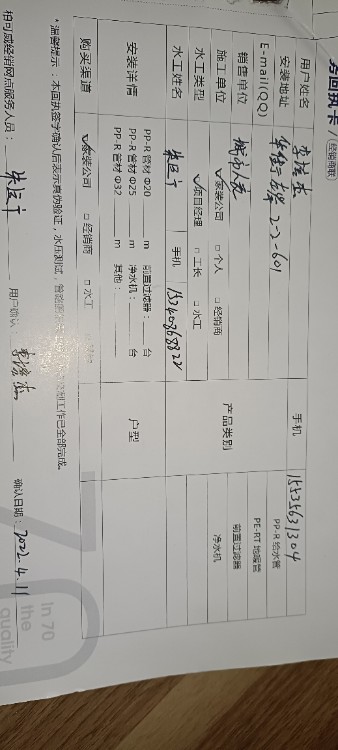 务回执卡/(经销商联)
用户姓名 手机 15535631304
安装地址 2-2-601
E-mail(QQ)
销售单位
施工单位 ☑家装公司 □个人 □经销商
水工类型 ☑项目经理 □工长 □水工
水工姓名 手机 15340868822
产品类别 PP-R 给水管
PE-RT 地暖管
前置过滤器
净水机
安装详情 PP-R 管材 Φ20 m 前置过滤器： 台 户型
PP-R 管材 Φ25 m 净水机： 台
PP-R 管材 Φ32 m 其他：
购买渠道 ☑家装公司 □经销商 □水工
*温馨提示：本回执签字确认后表示真伪验证，水压测试，工作已全部完成。
柏可威经销网点服务人员： 用户确认 确认日期：2022.4.11
70
In 70
the
quality